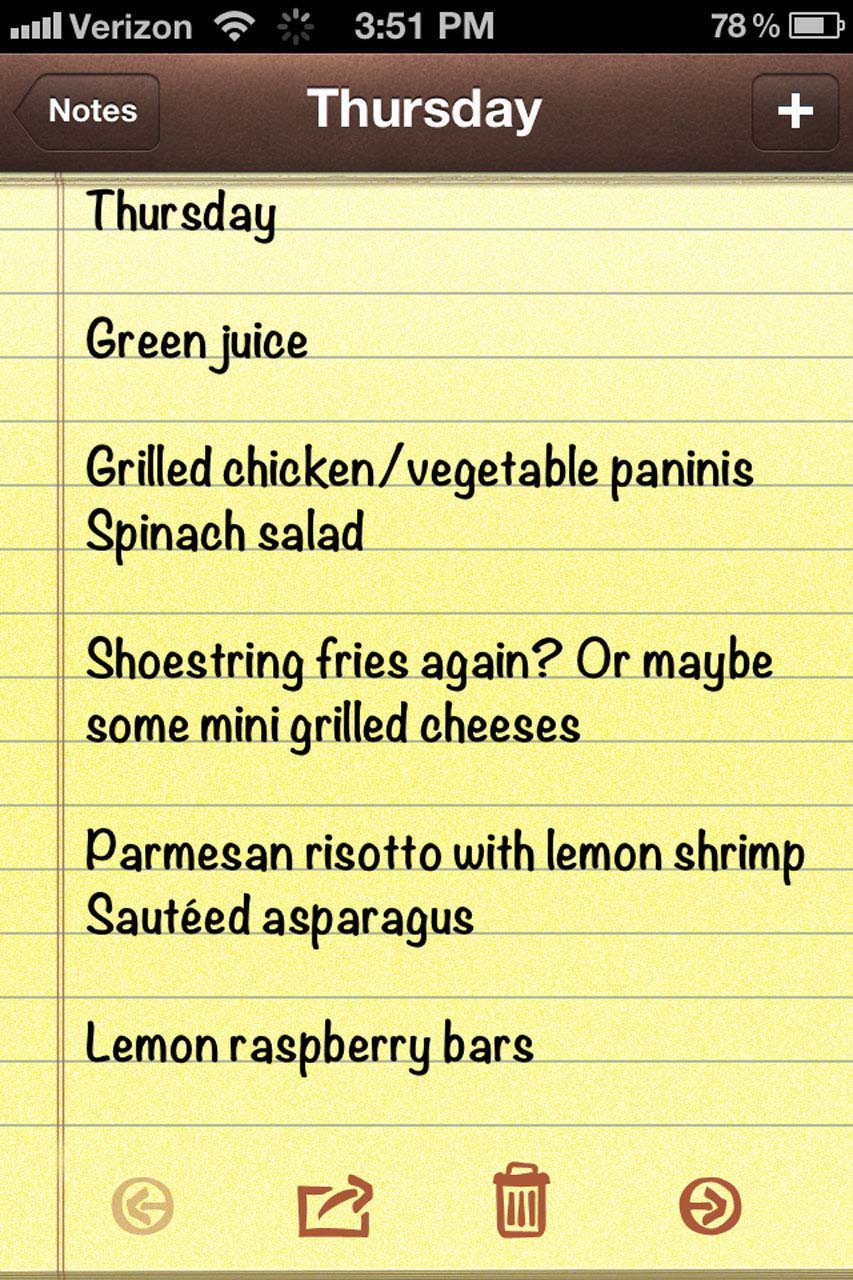 Verizon 3:51 PM 78 %
Notes Thursday +
Thursday
Green juice
Grilled chicken/vegetable paninis
Spinach salad
Shoestring fries again? Or maybe
some mini grilled cheeses
Parmesan risotto with lemon shrimp
Sautéed asparagus
Lemon raspberry bars